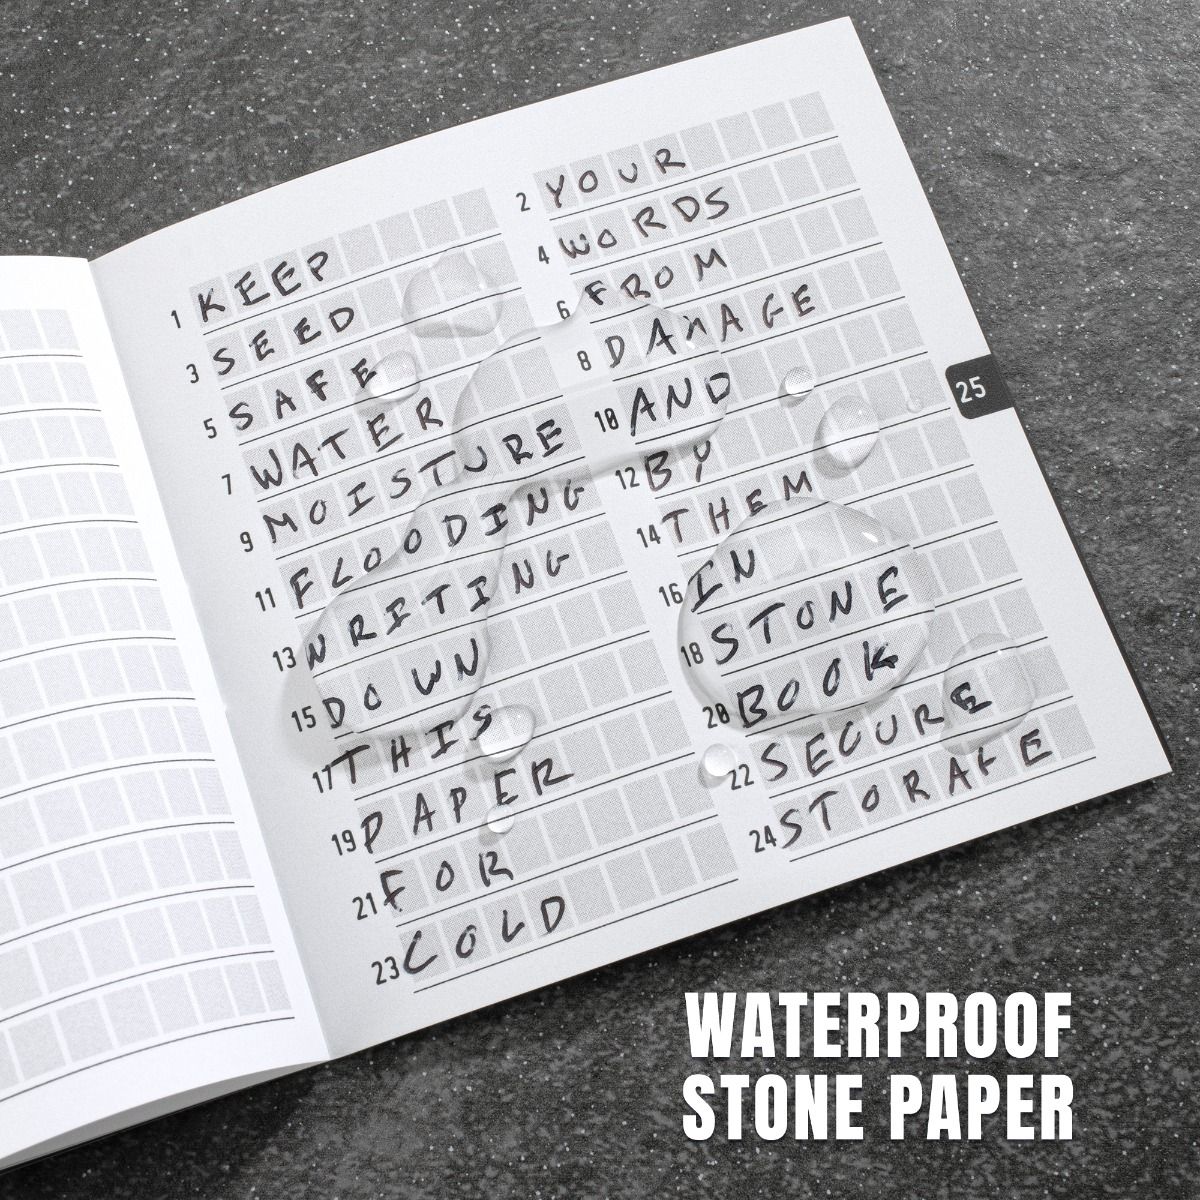 1 KEEP
2 YOUR
3 SEED
4 WORDS
5 SAFE
6 FROM
7 WATER
8 DAMAGE
9 MOISTURE
10 AND
11 FLOODING
12 BY
13 WRITING
14 THEM
15 DOWN
16 IN
17 THIS
18 STONE
19 PAPER
20 BOOK
21 FOR
22 SECURE
23 COLD
24 STORAGE
25
WATERPROOF
STONE PAPER